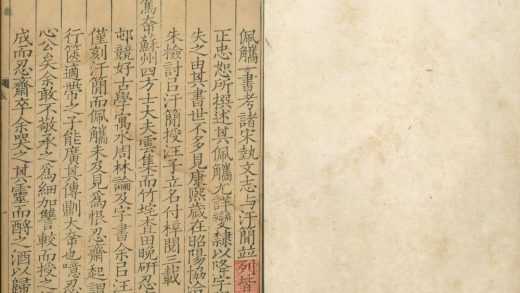 佩觿一書考諸宋藝文志与汗簡並列皆
正忠恕所撰述其佩觿尤詳變隸以降字
失之由其書世不多見康熙歲在昭陽協洽
朱檢討㠯汗簡授汪子立名付梓閱三載
駕幸蘇州四方士大夫雲集而竹垞直田晚研忍
邨競好古學寓水周林論及字書余㠯汪
僅刻汗簡而佩觿未及見爲恨忍齋起謂
行篋適携之子能廣其傳鼎大幸也噫忍
心公矣余敢不敬承之爲細加讐較而授之
成而忍齋卒余哭之其靈而酹之酒以歸